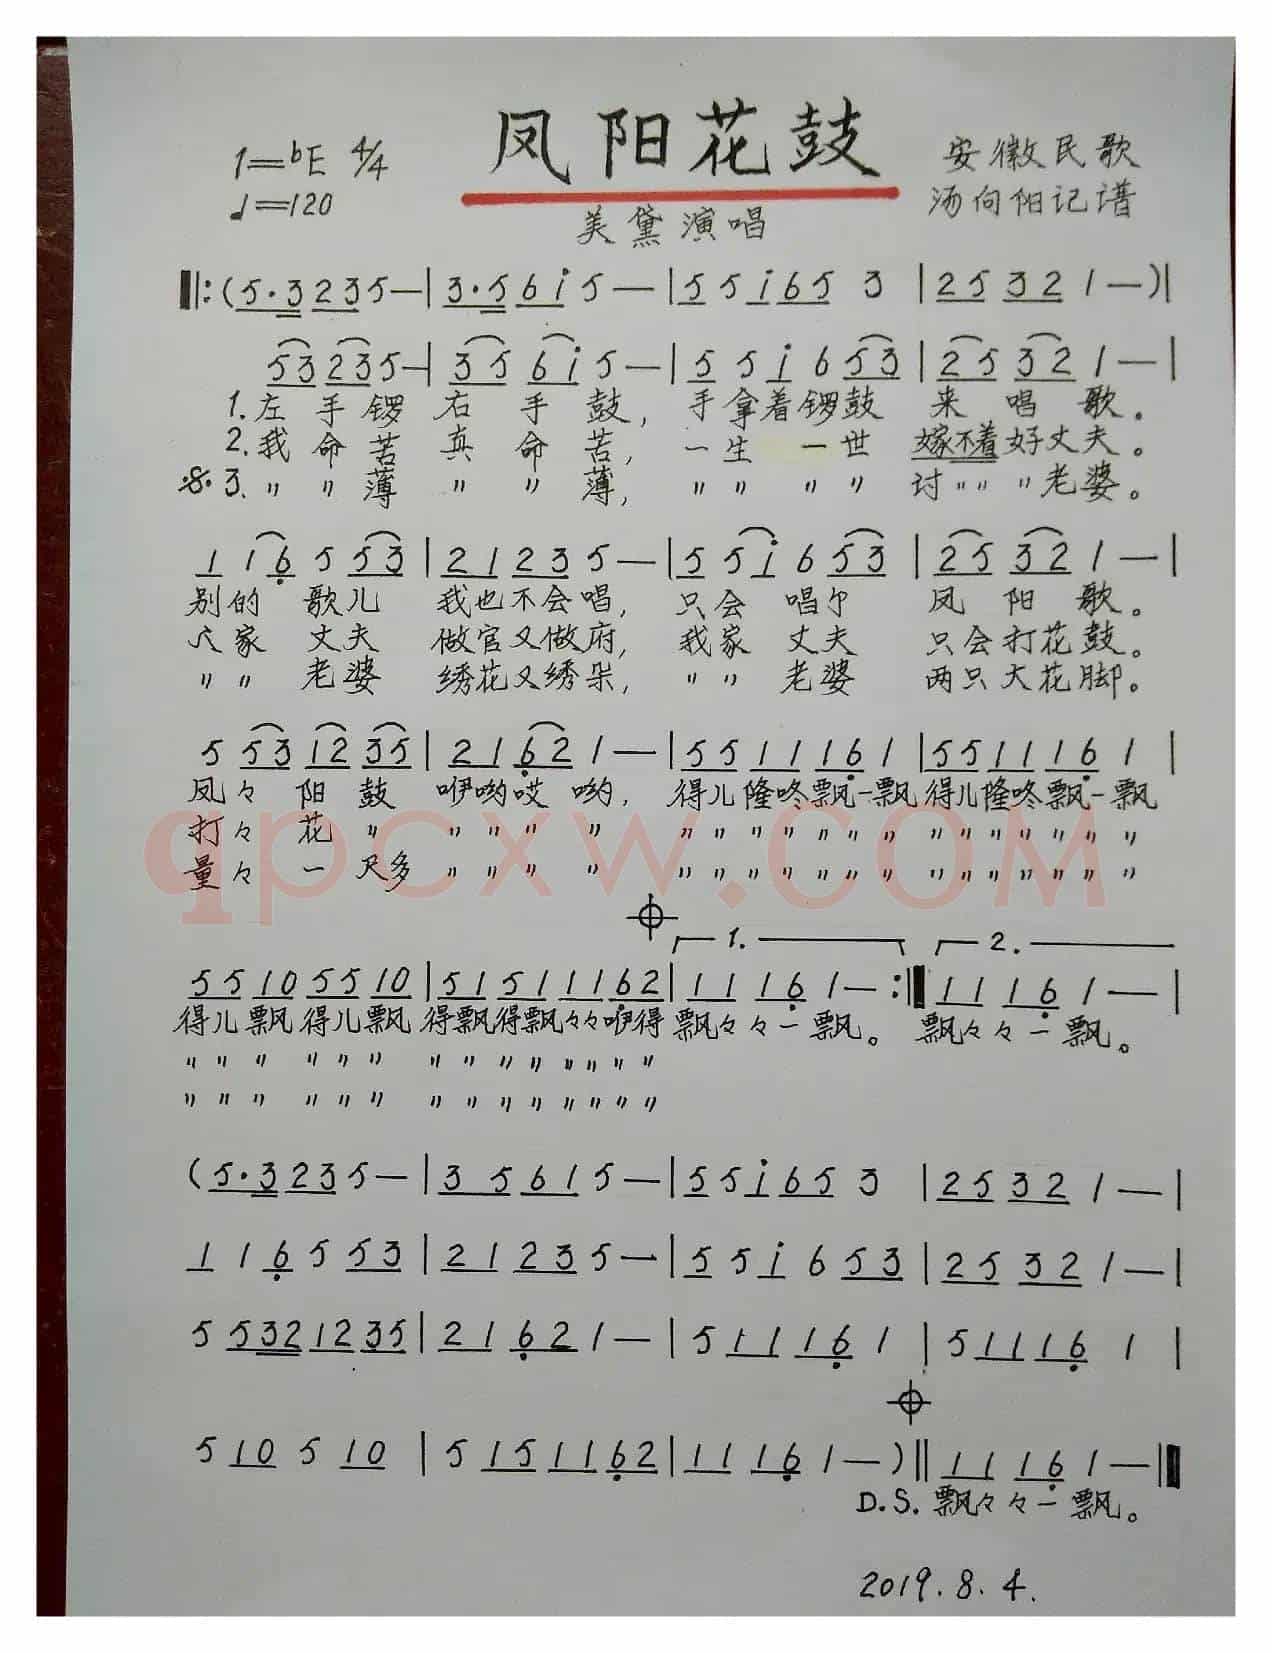 凤阳花鼓
1=bE 4/4
安徽民歌
♩=120
汤向阳记谱
美黛演唱
‖:(5·3 2 3 5 — | 3·5 6 i 5 — | 5 5 i 6 5 3 | 2 5 3 2 1 — )|
5 3 2 3 5 — | 3 5 6 i 5 — | 5 5 i 6 5 3 | 2 5 3 2 1 — |
1. 左手锣右手鼓,手拿着锣鼓来唱歌。
2. 我命苦真命苦,一生一世嫁不着好丈夫。
𝄋 3. 〃〃薄〃〃薄,〃〃〃〃讨〃〃〃老婆。
1 1 6 5 5 3 | 2 1 2 3 5 — | 5 5 i 6 5 3 | 2 5 3 2 1 — |
别的歌儿我也不会唱,只会唱尔凤阳歌。
六家丈夫做官又做府,我家丈夫只会打花鼓。
〃〃老婆绣花又绣朵,〃〃老婆两只大花脚。
5 5 3 1 2 3 5 | 2 1 6 2 1 — | 5 5 1 1 1 6 1 | 5 5 1 1 1 6 1 |
凤々阳鼓咿哟哎哟,得儿隆咚飘一飘得儿隆咚飘一飘
打々花〃〃〃〃〃〃〃〃〃〃〃〃〃〃〃〃〃〃〃
量々一尺多〃〃〃〃〃〃〃〃〃〃〃〃〃〃〃〃〃〃
qpcxw.com
1. 2.
5 5 1 0 5 5 1 0 | 5 1 5 1 1 1 6 2 | 1 1 1 6 1 — :‖ 1 1 1 6 1 — |
得儿飘得儿飘得飘得飘々々咿得飘々々一飘。飘々々一飘。
〃〃〃〃〃〃〃〃〃〃〃〃〃〃
〃〃〃〃〃〃〃〃〃〃〃〃〃〃
(5·3 2 3 5 — | 3 5 6 1 5 — | 5 5 i 6 5 3 | 2 5 3 2 1 — |
1 1 6 5 5 3 | 2 1 2 3 5 — | 5 5 i 6 5 3 | 2 5 3 2 1 — |
5 5 3 2 1 2 3 5 | 2 1 6 2 1 — | 5 1 1 1 6 1 | 5 1 1 1 6 1 |
5 1 0 5 1 0 | 5 1 5 1 1 6 2 | 1 1 1 6 1 — )‖ 1 1 1 6 1 — ‖
D.S. 飘々々一飘。
2019.8.4.